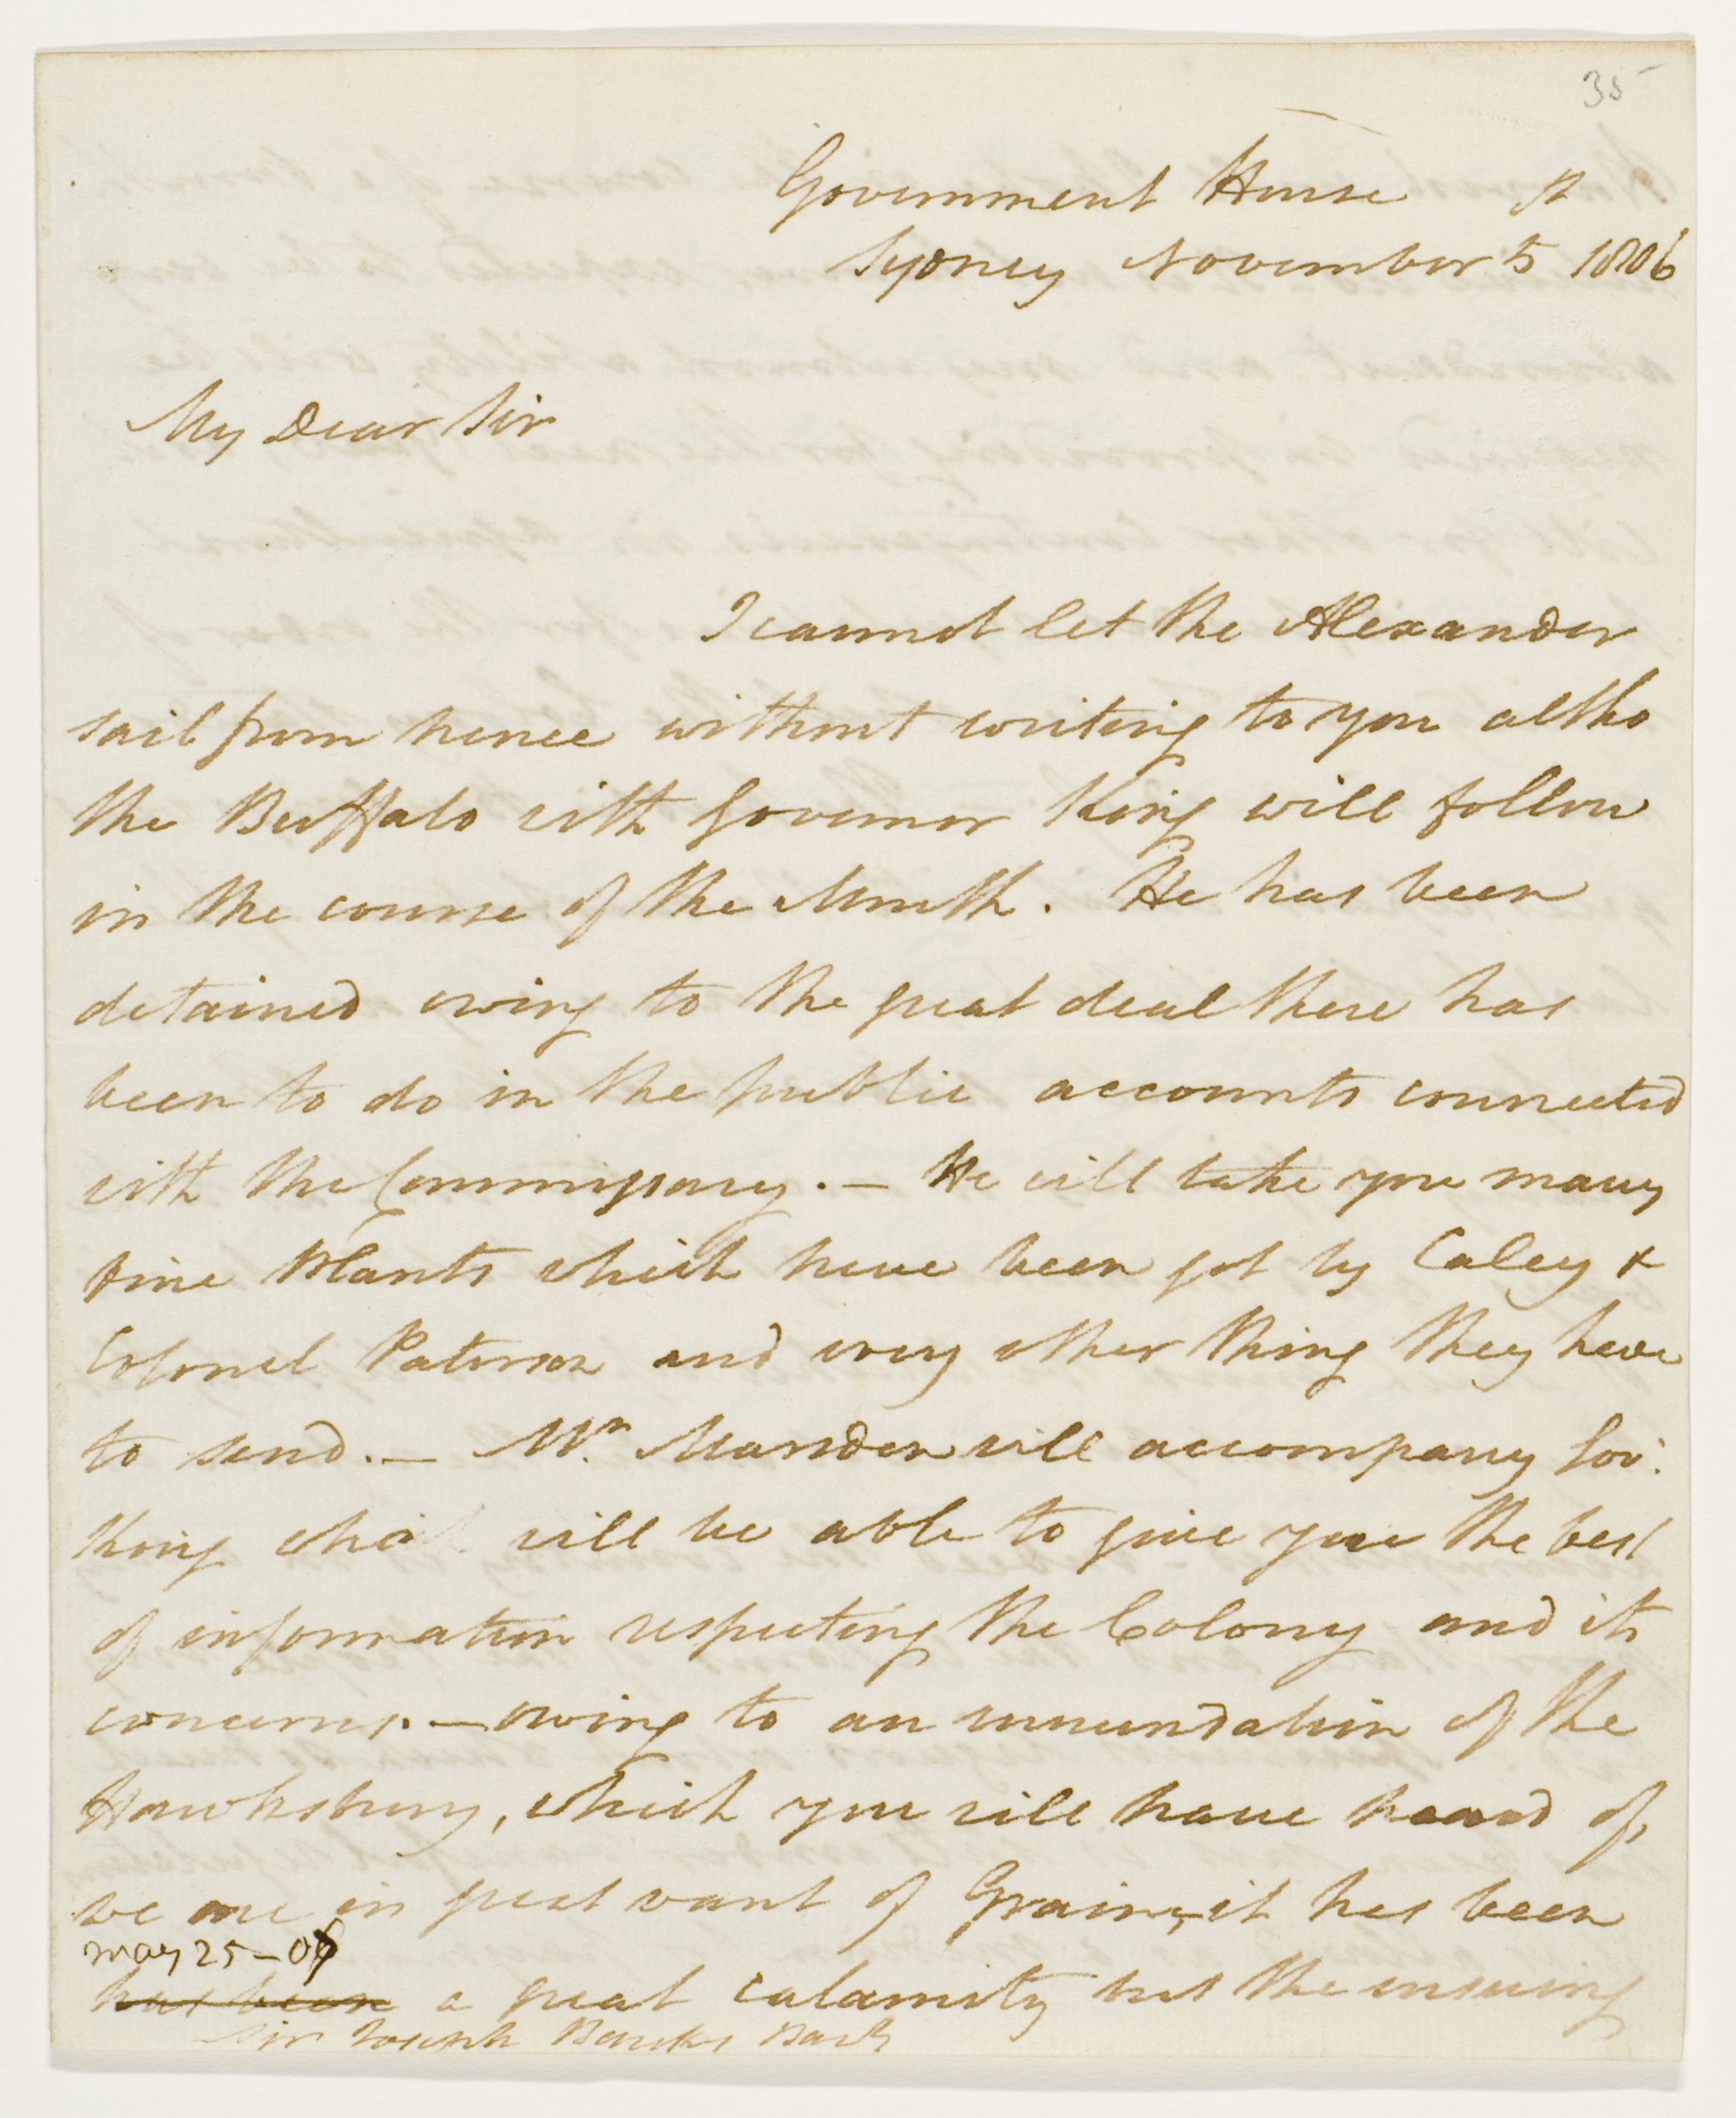 35
Government House
Sydney November 5 1806
My Dear Sir
I cannot let the Alexander
sail from hence without writing to you altho
the Buffalo with Governor King will follow
in the course of the Month. He has been
detained owing to the great deal there has
been to do in the public accounts connected
with the Commissary. — He will take you many
fine Plants which have been got by Caley &
Colonel Paterson and every other thing they have
to send. — Mr. Marsden will accompany Gov:
King who will be able to give you the best
of information respecting the Colony and its
concerns. — owing to an innundation of the
Hawksbury, which you will have heard of,
we are in great want of Grain, it has been
may 25 - 07
has been a great calamity but the ensuing
Sir Joseph Banks Bart